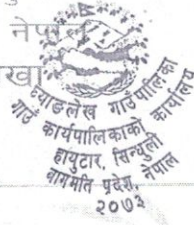 नेपाल
खा
घ्याङलेख गाउँपालिका
गाउँ कार्यपालिकाको कार्यालय
हायुटार, सिन्धुली
बागमति प्रदेश, नेपाल
२०७३